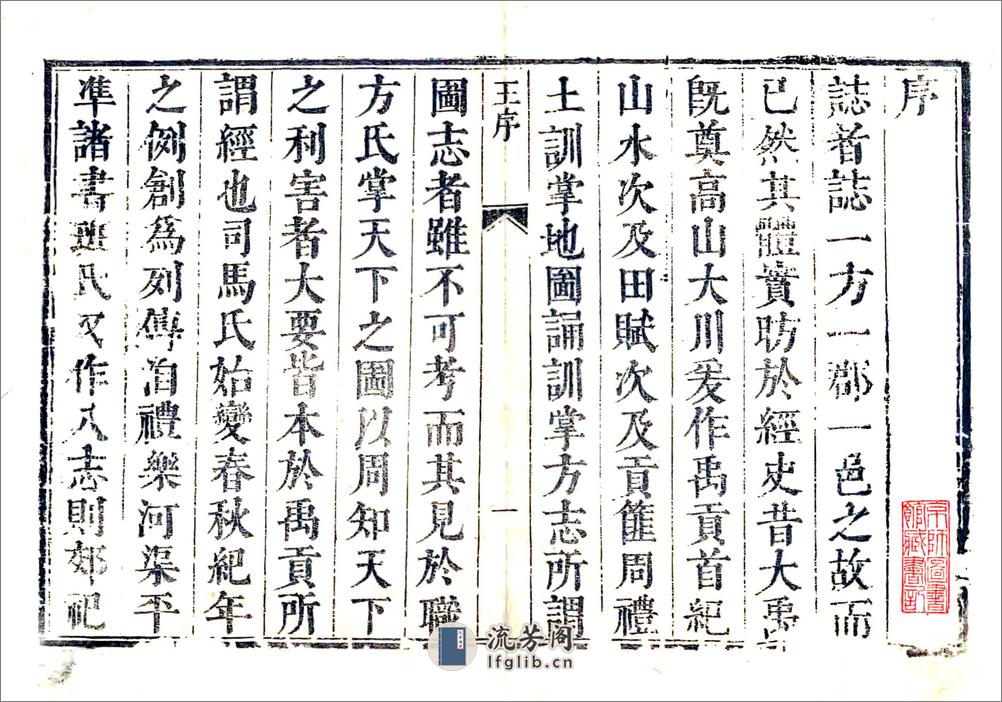 序
誌者誌一方一郡一邑之故而
已然其體實昉於經史昔大禹
旣奠高山大川爰作禹貢首紀
山水次及田賦次及貢篚周禮
土訓掌地圖誦訓掌方志所謂
王序
一
圖志者雖不可考而其見於職
方氏掌天下之圖以周知天下
之利害者大要皆本於禹貢所
謂經也司馬氏始變春秋紀年
之例創爲列傳洎禮樂河渠平
準諸書班氏又作八志則郊祀
京師圖書
館藏書記
流芳阁
lfglib.cn